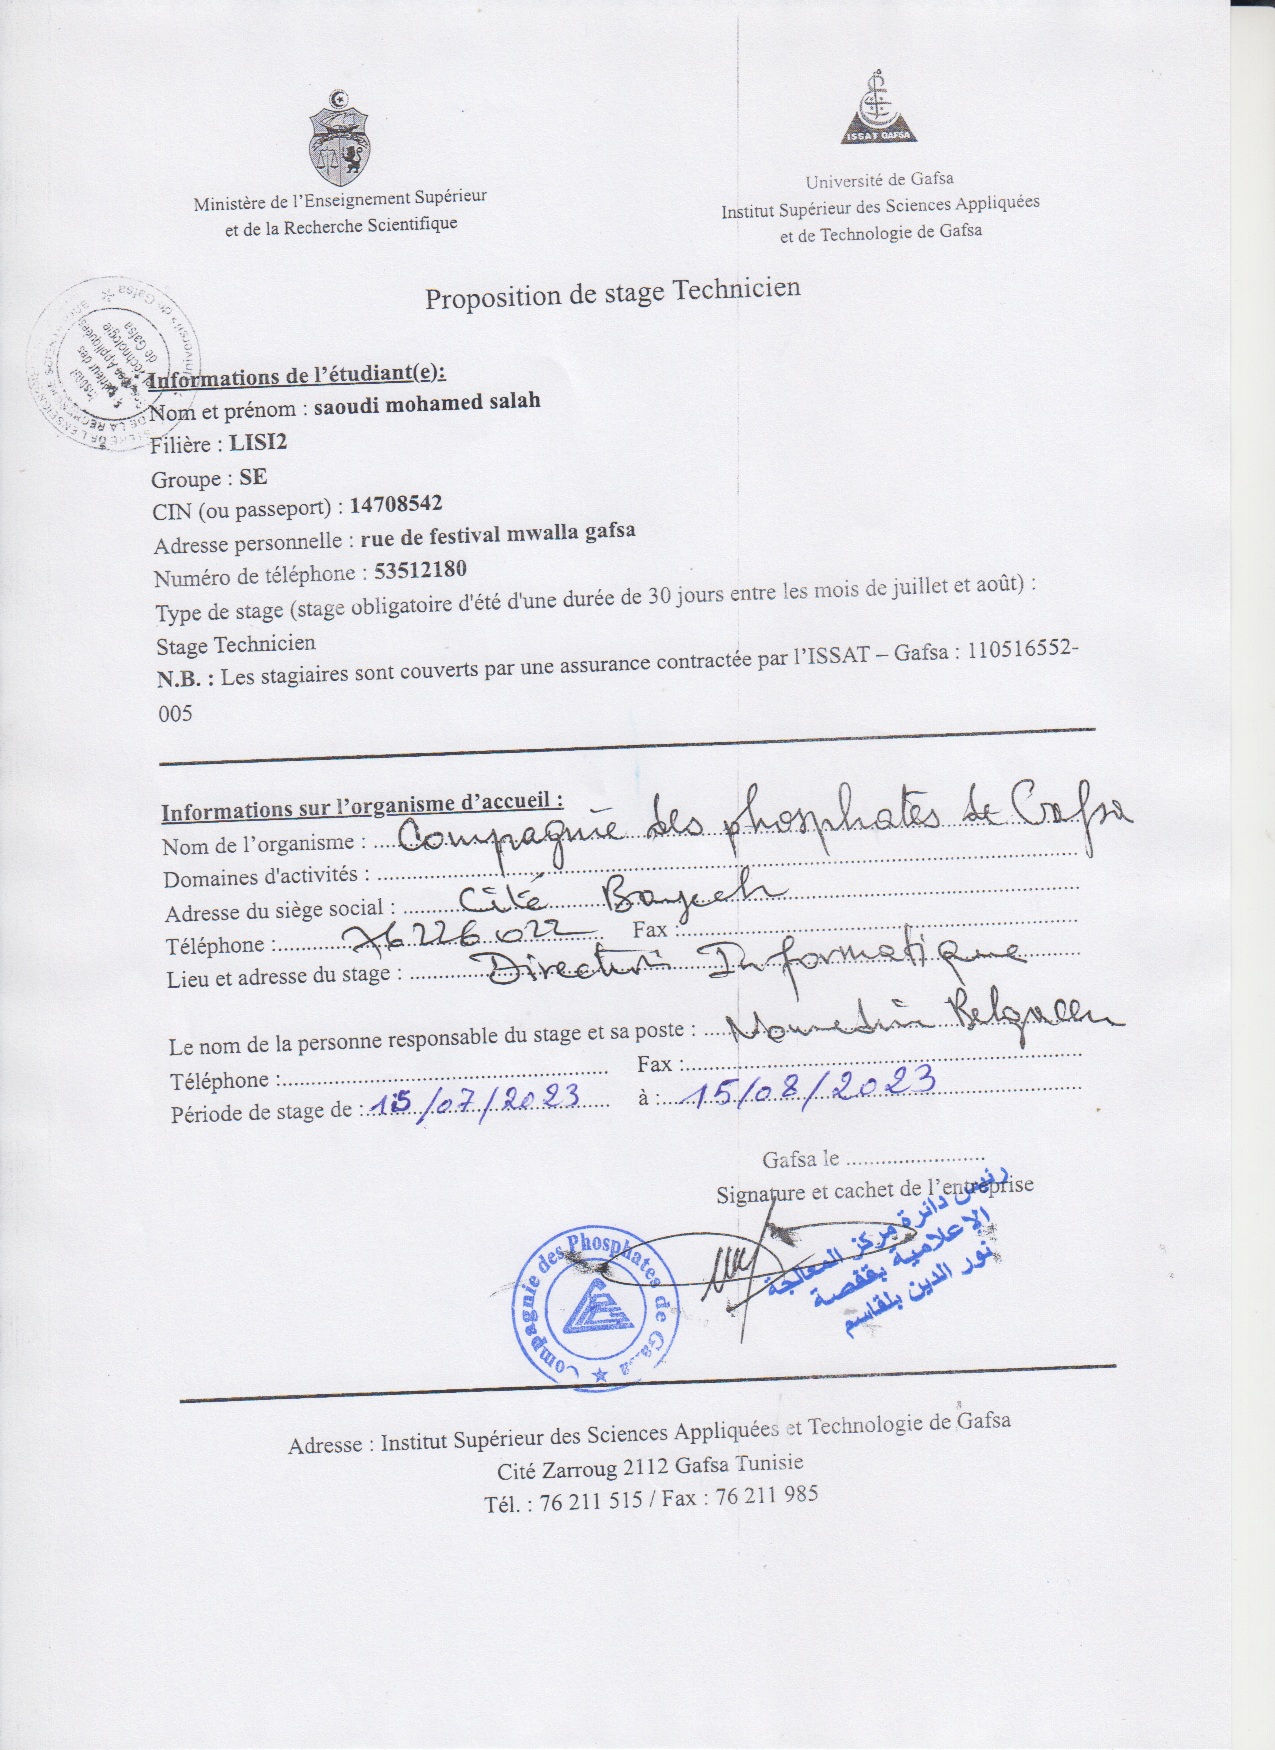 ISSAT GAFSA
Ministère de l'Enseignement Supérieur
et de la Recherche Scientifique
Université de Gafsa
Institut Supérieur des Sciences Appliquées
et de Technologie de Gafsa
Proposition de stage Technicien
Informations de l'étudiant(e):
Nom et prénom : saoudi mohamed salah
Filière : LISI2
Groupe : SE
CIN (ou passeport) : 14708542
Adresse personnelle : rue de festival mwalla gafsa
Numéro de téléphone : 53512180
Type de stage (stage obligatoire d'été d'une durée de 30 jours entre les mois de juillet et août) :
Stage Technicien
N.B. : Les stagiaires sont couverts par une assurance contractée par l'ISSAT – Gafsa : 110516552-
005
Informations sur l'organisme d'accueil :
Nom de l'organisme : Compagnie des phosphates de Gafsa
Domaines d'activités :
Adresse du siège social : Cité Bayech
Téléphone : 76226022 Fax :
Lieu et adresse du stage : Direction Informatique
Le nom de la personne responsable du stage et sa poste : Nouredin Belgacem
Téléphone : Fax :
Période de stage de : 15/07/2023 à : 15/08/2023
Gafsa le
Signature et cachet de l'entreprise
رئيس دائرة مركز المعالجة
الإعلامية بقفصة
نور الدين بلقاسم
Compagnie des Phosphates de Gafsa
Adresse : Institut Supérieur des Sciences Appliquées et Technologie de Gafsa
Cité Zarroug 2112 Gafsa Tunisie
Tél. : 76 211 515 / Fax : 76 211 985